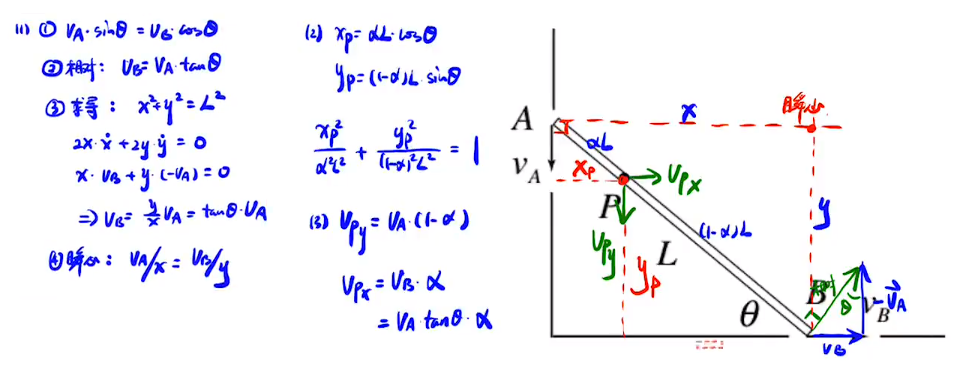 (1) ① v_A·sinθ = v_B·cosθ
② 相对: v_B = v_A·tanθ
③ 求导: x²+y² = L²
2x·ẋ + 2y·ẏ = 0
x·v_B + y·(-v_A) = 0
⇒ v_B = y/x v_A = tanθ·v_A
④ 瞬心: v_A/x = v_B/y
(2) x_P = αL·cosθ
y_P = (1-α)L·sinθ
x_P²/α²L² + y_P²/(1-α)²L² = 1
(3) v_Py = v_A·(1-α)
v_Px = v_B·α
= v_A·tanθ·α
x
瞬心
A
αL
v_A
x_P
v_Px
P
(1-α)L
y
v_Py
L
y_P
θ
B
相对
θ
v_B
-v_A
v_B